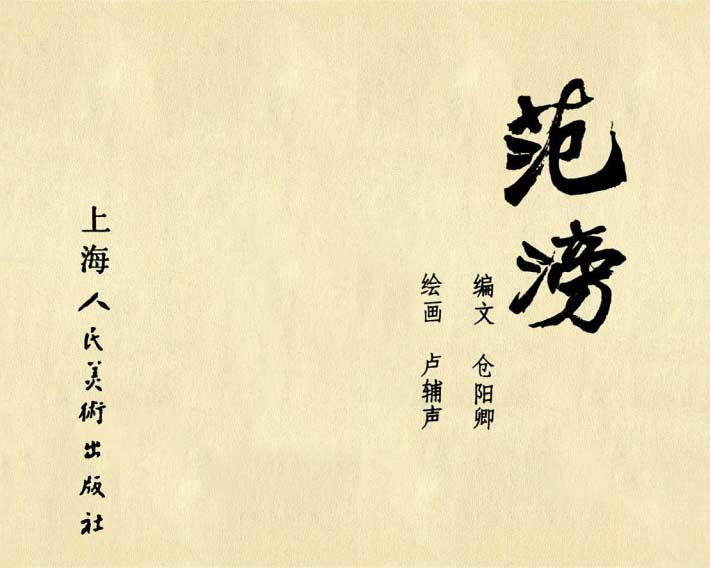 范滂
编文 仓阳卿
绘画 卢辅声
上海人民美術出版社